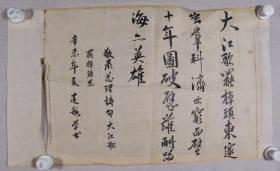 大江歌罷掉頭東邃
密羣科濟世窮面壁
十年圖破壁難酬蹈
海亦英雄
敬录总理詩句大江歌
罷掉頭東
辛未年夏建学书